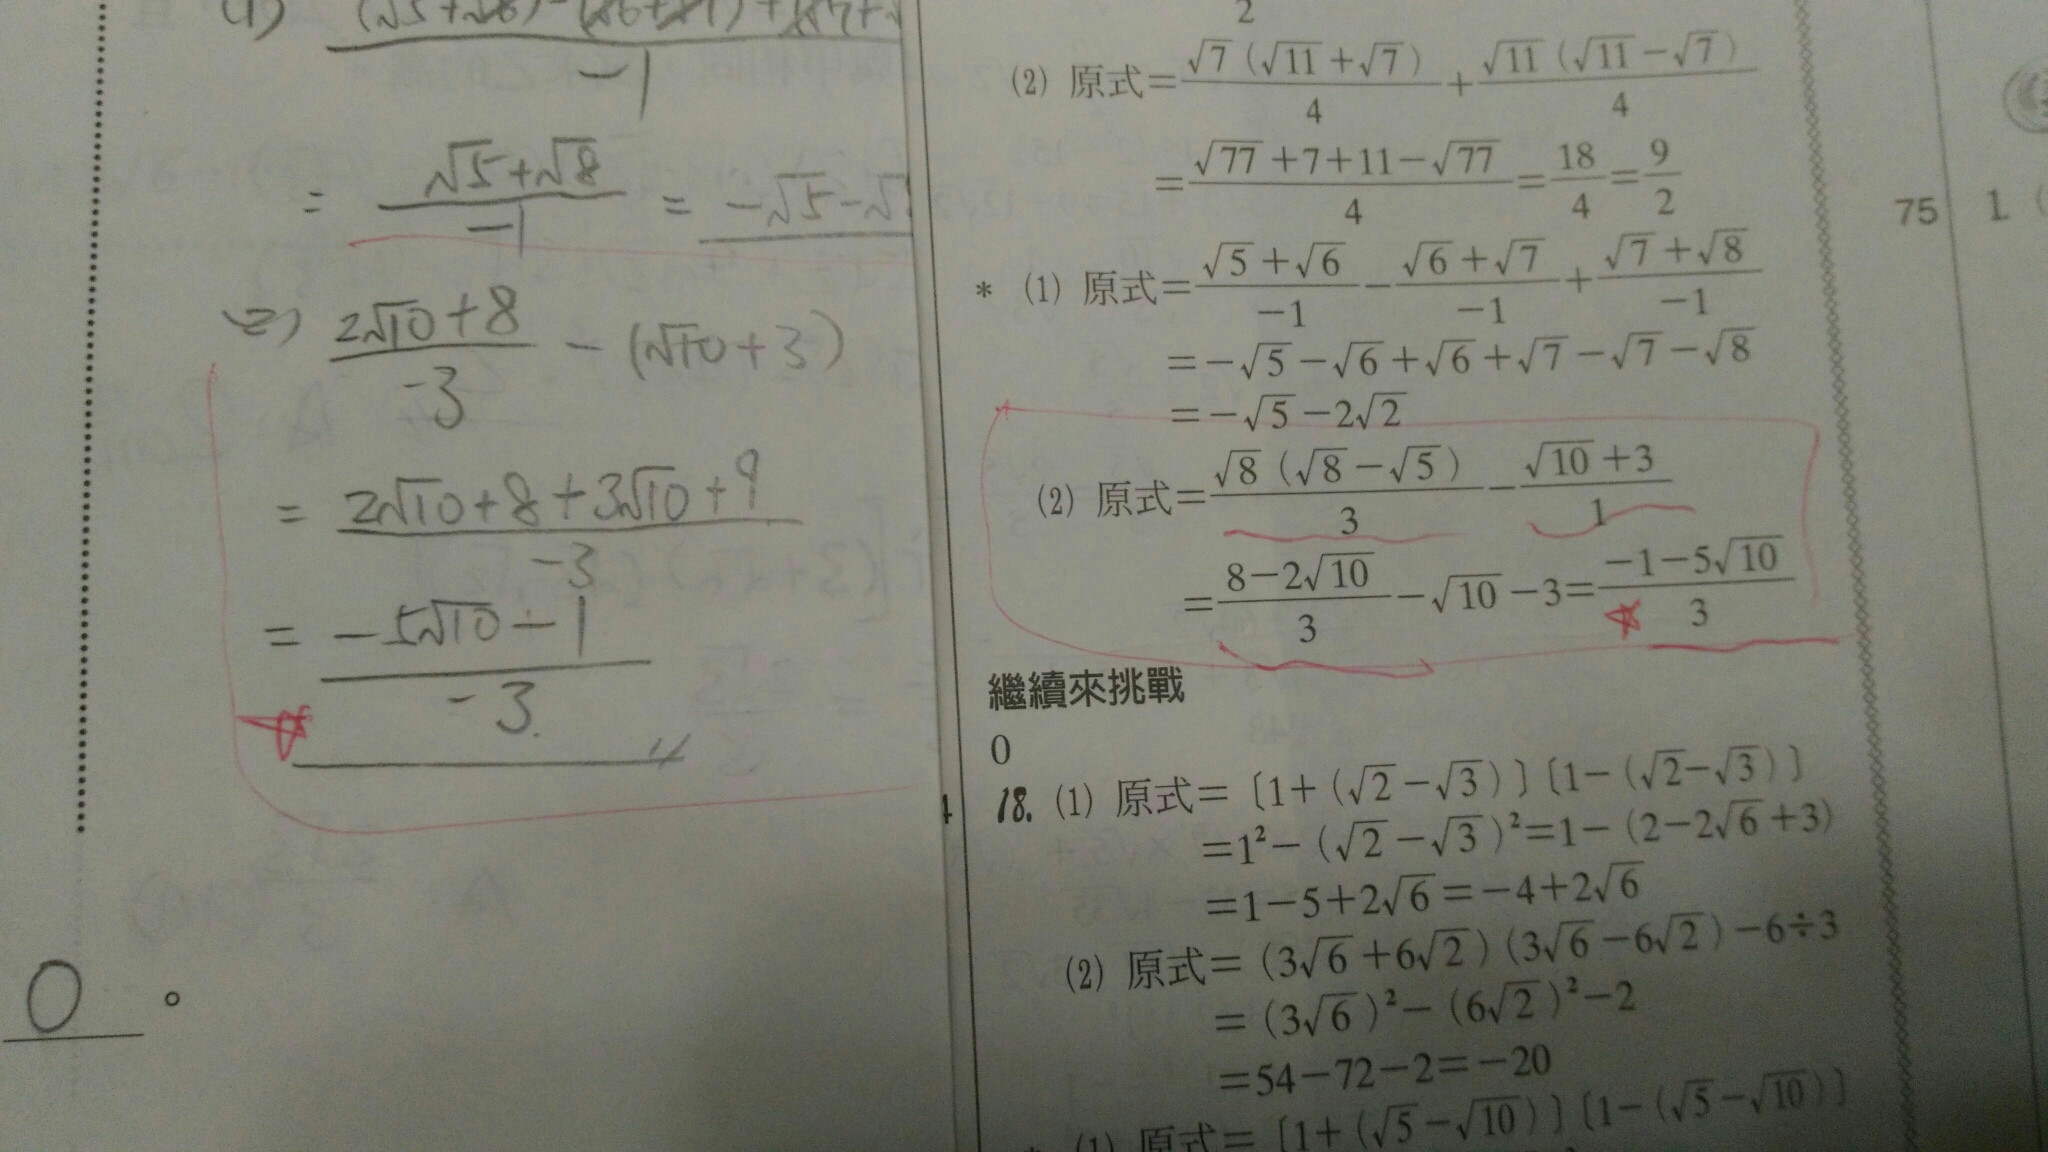 (√5+√6)-(√6+√7)+(√7+√
-1
= √5+√8 / -1 = -√5-√
(2) 2√10+8 / -3 - (√10+3)
= 2√10+8+3√10+9 / -3
= -5√10-1 / -3
0 。
2
(2) 原式=√7 (√11+√7) / 4 + √11 (√11-√7) / 4
=√77+7+11-√77 / 4=18/4=9/2
* (1) 原式=√5+√6 / -1 - √6+√7 / -1 + √7+√8 / -1
=-√5-√6+√6+√7-√7-√8
=-√5-2√2
(2) 原式=√8 (√8-√5) / 3 - √10+3 / 1
=8-2√10 / 3 -√10-3=-1-5√10 / 3
繼續來挑戰
0
18. (1) 原式=〔1+(√2-√3)〕〔1-(√2-√3)〕
=1²-(√2-√3)²=1-(2-2√6+3)
=1-5+2√6=-4+2√6
(2) 原式=(3√6+6√2)(3√6-6√2)-6÷3
=(3√6)²-(6√2)²-2
=54-72-2=-20
* (1) 原式=〔1+(√5-√10)〕〔1-(√5-√10)〕
75 1